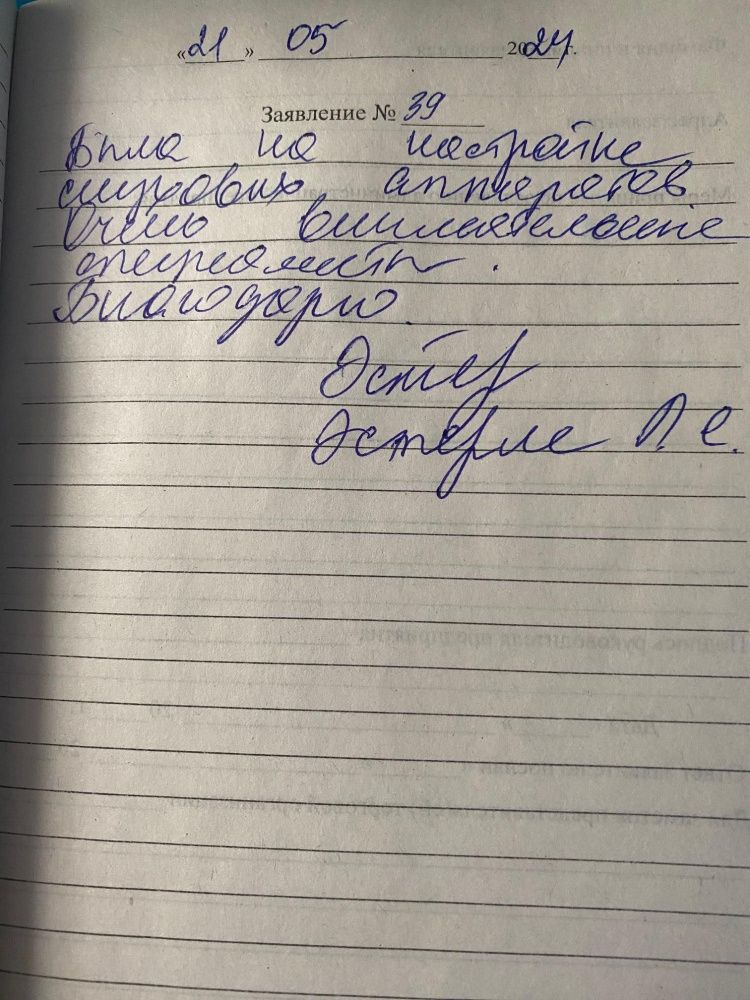 «21» 05 2024 г.
Заявление № 39
Была на настройке
слуховых аппаратов.
Очень внимательные
специалисты.
Благодарю.
Эстер
Эстерле Л. С.